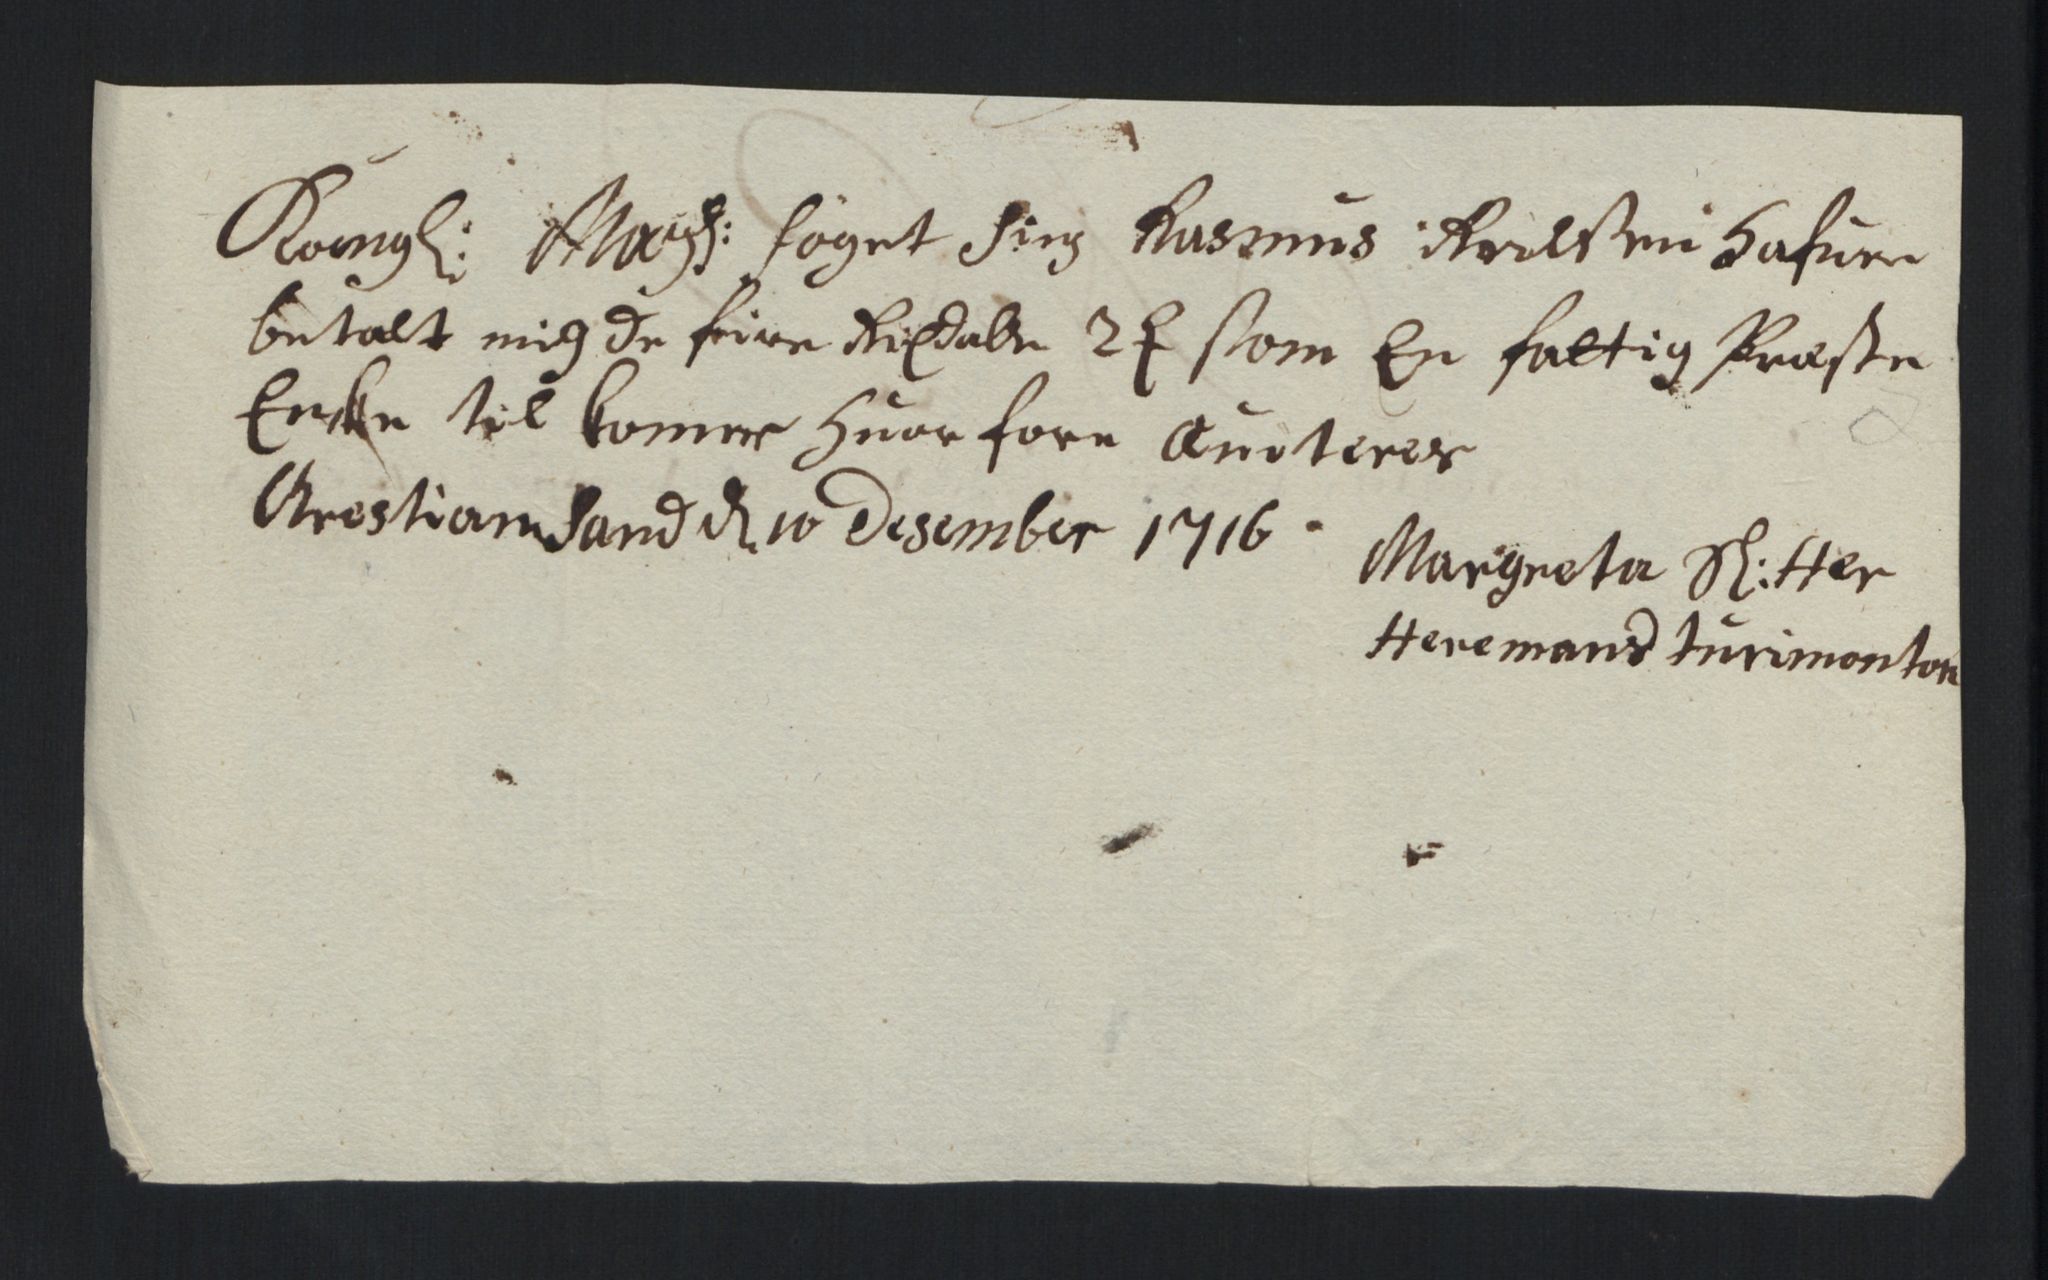 Kongl: Mays: foget Sing Rasmus Arelsen hafuer
betalt mig de feire Rixdaler 2 som En fattig Præste
Encke til komer huor fore Quiterer
Crestiansand d 10 Desember 1716
Margreta Sl: Her
Heremans turimonton